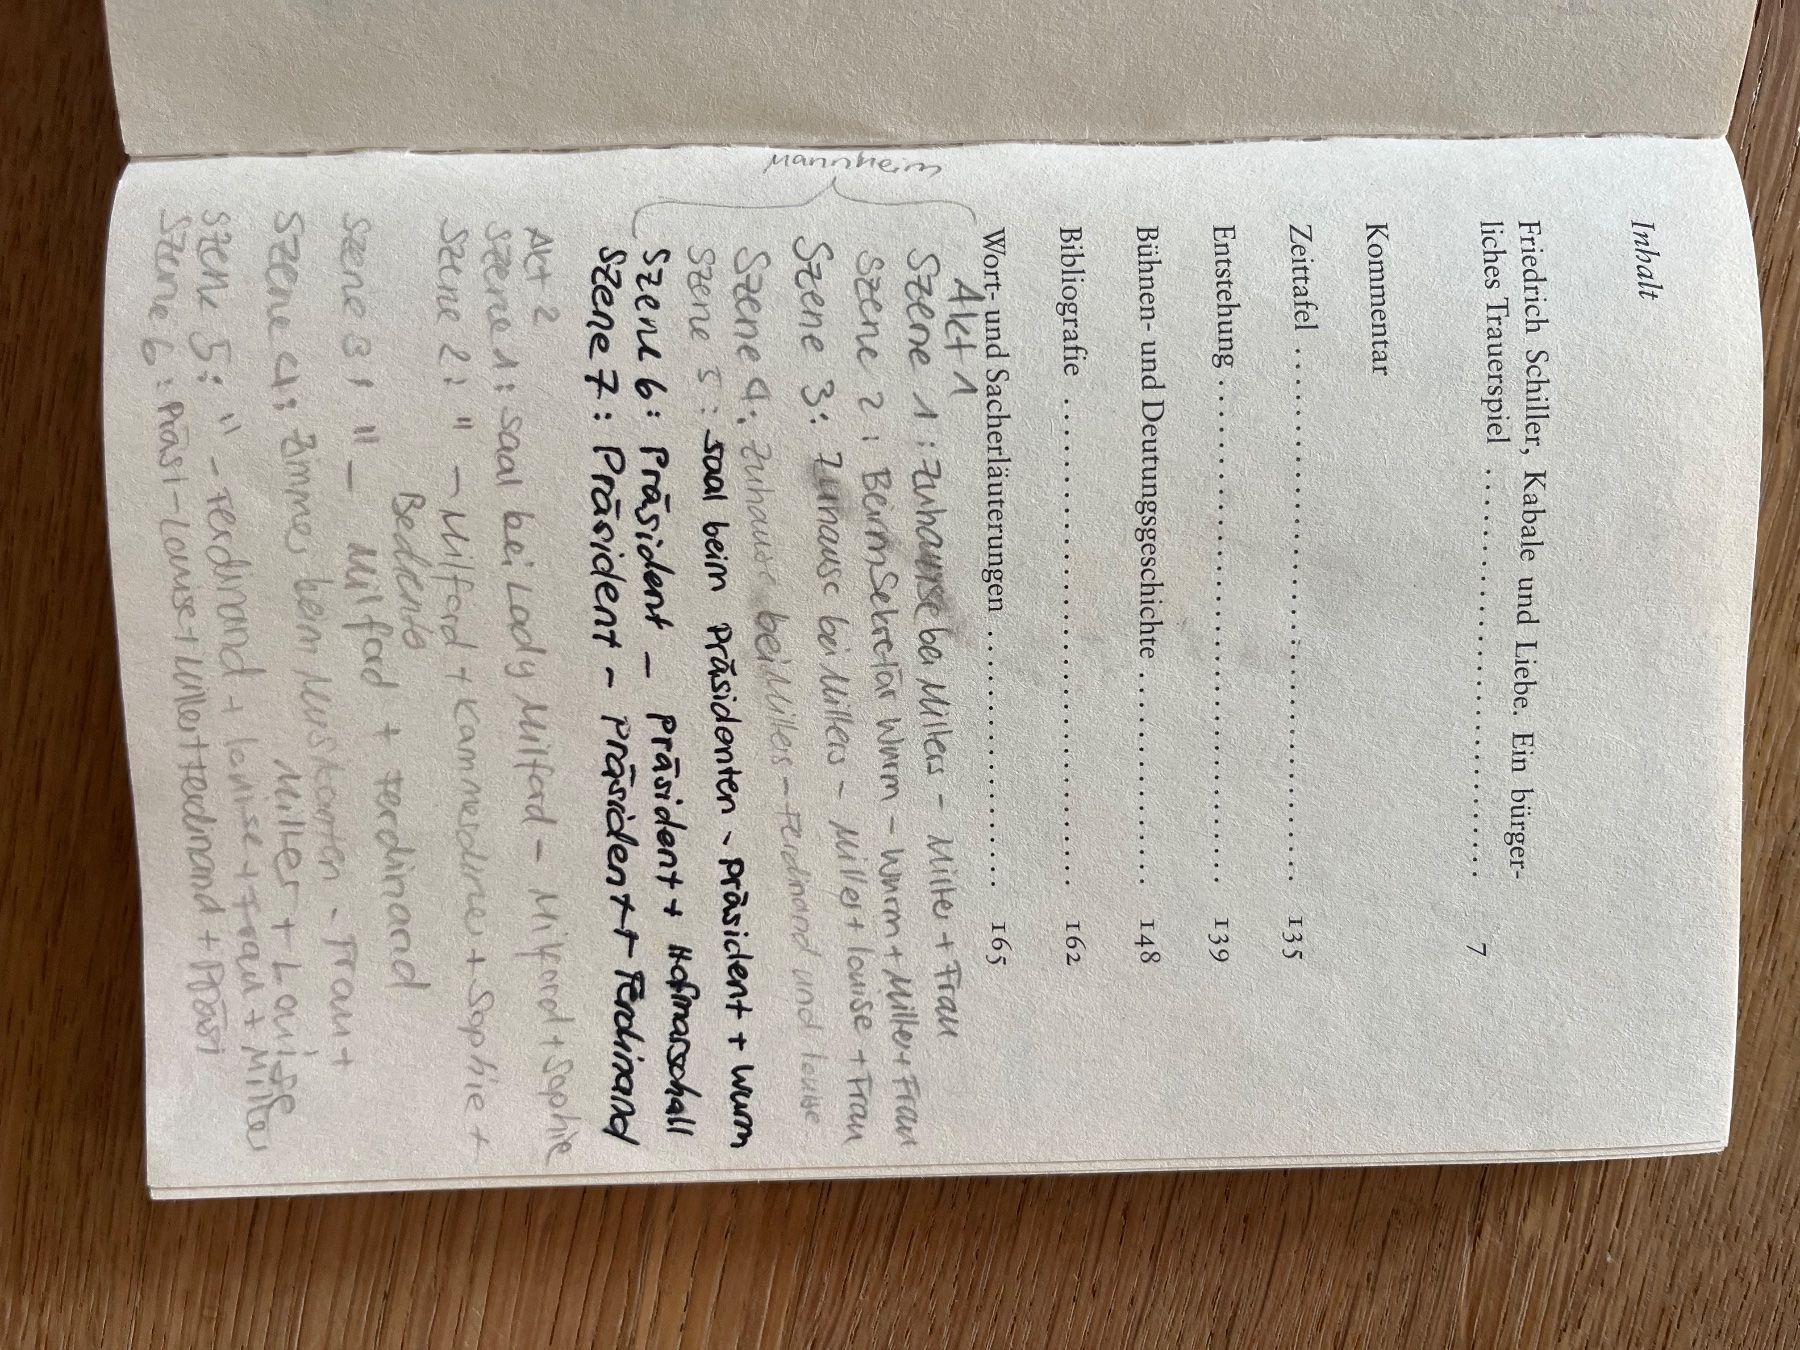 Inhalt
Friedrich Schiller, Kabale und Liebe. Ein bürger-
liches Trauerspiel . . . . . . . . . . . . . . . . . . . . . . . . . . 7
Kommentar
Zeittafel . . . . . . . . . . . . . . . . . . . . . . . . . . . . . . . . . . 135
Entstehung . . . . . . . . . . . . . . . . . . . . . . . . . . . . . . . . 139
Bühnen- und Deutungsgeschichte . . . . . . . . . . . . . . 148
Bibliografie . . . . . . . . . . . . . . . . . . . . . . . . . . . . . . . 162
Wort- und Sacherläuterungen . . . . . . . . . . . . . . . . . 165
Akt 1
Mannheim
Szene 1: Zuhause bei Millers - Miller + Frau
Szene 2: Beim Sekretär Wurm - Wurm + Miller + Frau
Szene 3: Zuhause bei Millers - Miller + Louise + Frau
Szene 4: Zuhause bei Millers - Ferdinand und Louise
Szene 5: Saal beim Präsidenten - Präsident + Wurm
Szene 6: Präsident - Präsident + Hofmarschall
Szene 7: Präsident - Präsident + Ferdinand
Akt 2
Szene 1: Saal bei Lady Milford - Milford + Sophie
Szene 2: " - Milford + Kammerdiener + Sophie +
Bediente
Szene 3: " - Milford + Ferdinand
Szene 4: Zimmer beim Musikanten - Frau +
Miller + Louise
Szene 5: " - Ferdinand + Louise + Frau + Miller
Szene 6: Präsi - Louise + Miller + Ferdinand + Präsi